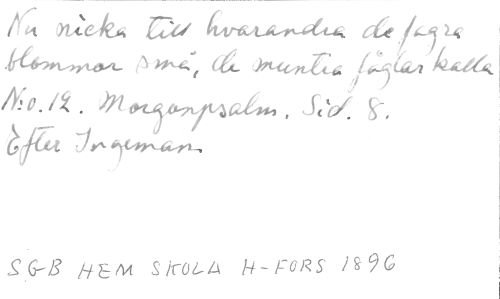 Nu nicka till hvarandra de fagra
blommor små, de muntra foglar kalla
N:o. 12. Morgonpsalm. Sid. 8.
Efter Ingeman.
SGB HEM SKOLA H-FORS 1896